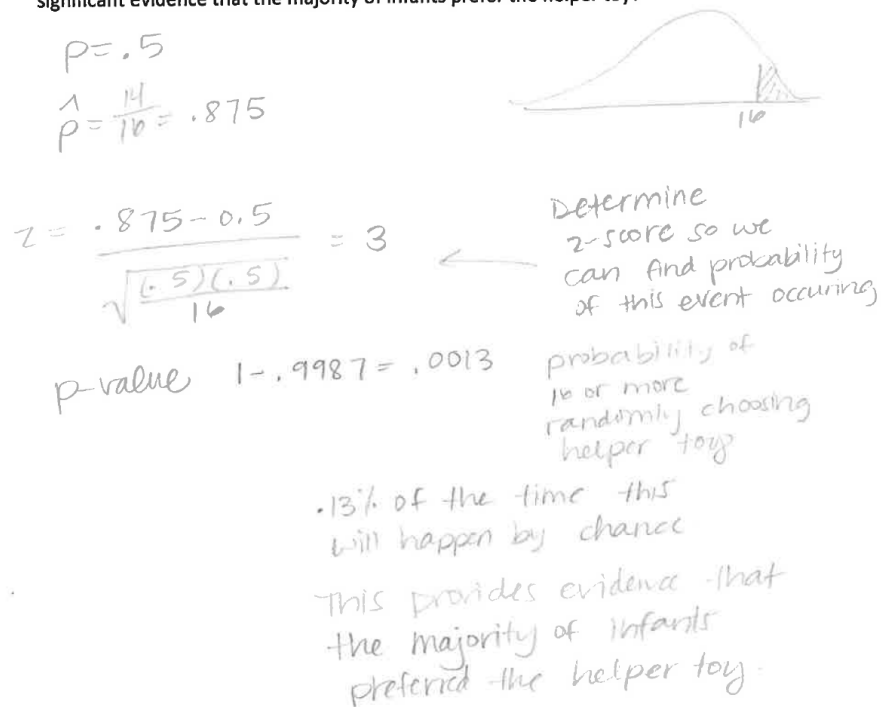 significant evidence that the majority of infants prefer the helper toy?
p=.5
p̂ = 14/16 = .875
16
z = .875-0.5 / √(.5)(.5)/16 = 3
Determine
z-score so we
can find probability
of this event occuring
p-value 1-.9987=.0013
probability of
16 or more
randomly choosing
helper toy
.13% of the time this
will happen by chance
This provides evidence that
the majority of infants
preferred the helper toy.